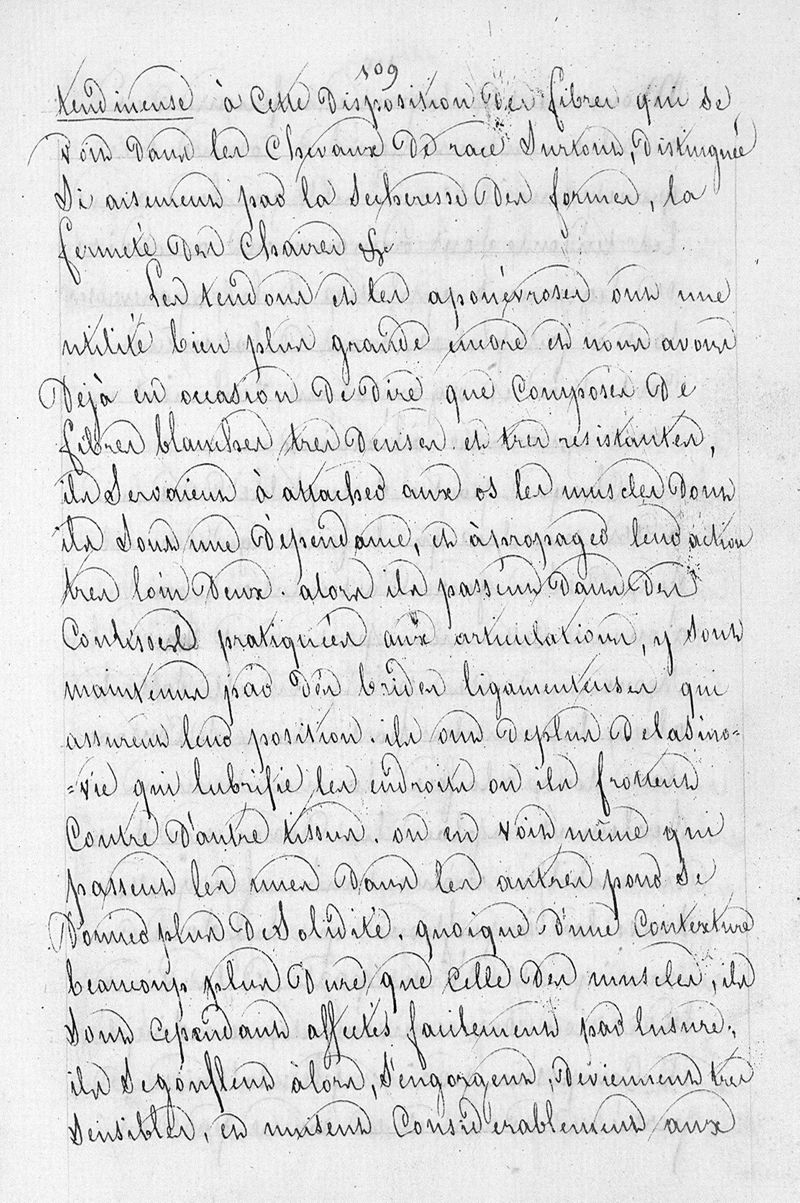 109
tendineuse à Cette Disposition des fibres qui se
voit dans les Chevaux De race Surtout, Distinguée
Si aisement par la Secheresse Des formes, la
fermeté Des Chaires &c
Les tendons et les aponévroses ont une
utilité bien plus grande encore et nous avons
Dejà eu occasion De Dire que Composés De
fibres blanches tres Denses et tres résistantes,
ils Servaient à attacher aux os les muscles Dont
ils Sont une Dépendance, et àpropager leur action
tres loin Deux. alors ils passent Dans Des
Coulisses pratiquées aux articulations, y Sont
maintenus par Des brides ligamenteuses qui
assurent leur position. ils ont Deplus Delasino=
=vie qui lubrifie les endroits ou ils frottent
Contre D'autre tissus. on en voit même qui
passent les unes Dans les autres pour Se
Donner plus De Solidité. quoique D'une Contexture
beaucoup plus Dure que Celle Des muscles, ils
Sont Cependant affectés facilement par lusure,
ils Segonflent àlors, S'engorgent, Deviennent trés
Sensibles, et nuisent Considerablement aux